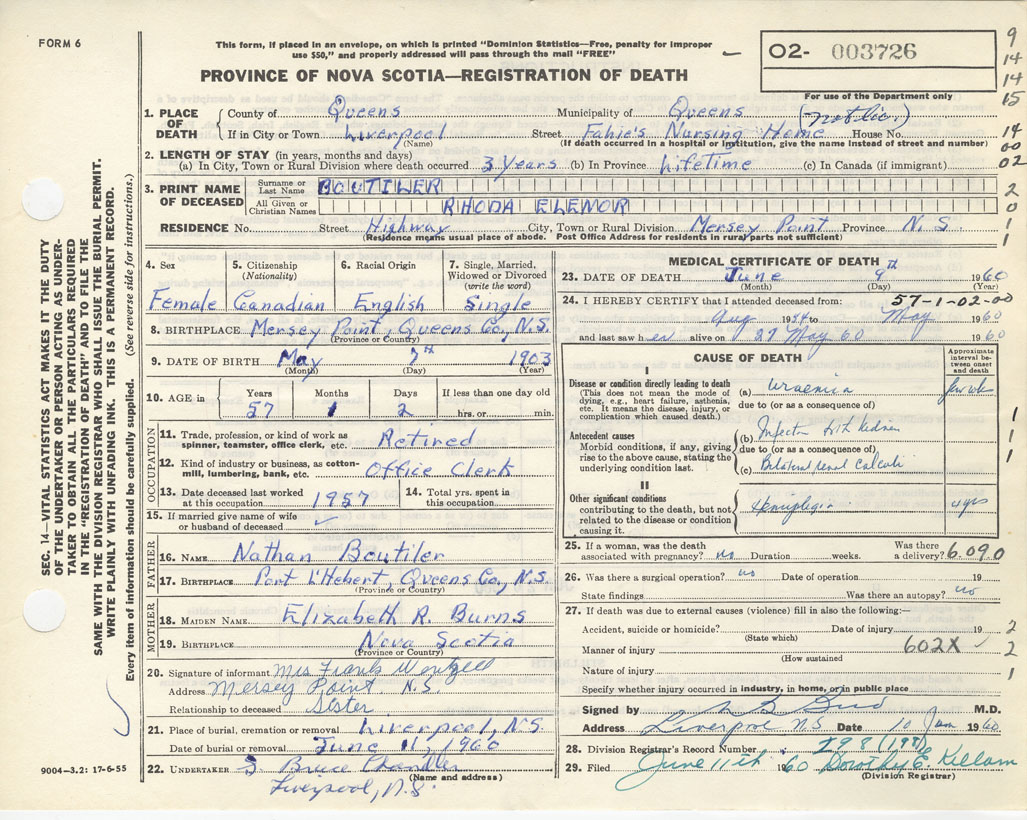 FORM 6
This form, if placed in an envelope, on which is printed "Dominion Statistics—Free, penalty for improper
use $50," and properly addressed will pass through the mail "FREE"
PROVINCE OF NOVA SCOTIA—REGISTRATION OF DEATH
O2- 003726
For use of the Department only
9
14
14
15
14
00
02
2
0
1
1
SEC. 14—VITAL STATISTICS ACT MAKES IT THE DUTY
OF THE UNDERTAKER OR PERSON ACTING AS UNDER-
TAKER TO OBTAIN ALL THE PARTICULARS REQUIRED
IN THE "REGISTRATION OF DEATH" AND TO FILE THE
SAME WITH THE DIVISION REGISTRAR WHO SHALL ISSUE THE BURIAL PERMIT.
WRITE PLAINLY WITH UNFADING INK. THIS IS A PERMANENT RECORD.
Every item of information should be carefully supplied. (See reverse side for instructions.)
1. PLACE OF DEATH
County of Queens Municipality of Queens (not Lic.)
If in City or Town Liverpool Street Fahie's Nursing Home House No.
(Name) (If death occurred in a hospital or institution, give the name instead of street and number)
2. LENGTH OF STAY (in years, months and days)
(a) In City, Town or Rural Division where death occurred 3 Years (b) In Province Lifetime (c) In Canada (if immigrant)
3. PRINT NAME OF DECEASED
Surname or Last Name BOUTILER
All Given or Christian Names RHODA ELENOR
RESIDENCE No. Street Highway City, Town or Rural Division Mersey Point Province N. S
(Residence means usual place of abode. Post Office Address for residents in rural parts not sufficient)
4. Sex 5. Citizenship (Nationality) 6. Racial Origin 7. Single, Married, Widowed or Divorced (write the word)
Female Canadian English Single
8. BIRTHPLACE Mersey Point, Queens Co., N.S.
(Province or Country)
9. DATE OF BIRTH May 7th 1903
(Month) (Day) (Year)
10. AGE in Years Months Days If less than one day old
57 1 2 hrs. or min.
OCCUPATION
11. Trade, profession, or kind of work as spinner, teamster, office clerk, etc. Retired
12. Kind of industry or business, as cotton-mill, lumbering, bank, etc. Office Clerk
13. Date deceased last worked at this occupation 1957 14. Total yrs. spent in this occupation
15. If married give name of wife or husband of deceased
FATHER
16. NAME Nathan Boutiler
17. BIRTHPLACE Port L'Hebert, Queens Co., N.S.
(Province or Country)
MOTHER
18. MAIDEN NAME Elizabeth R. Burns
19. BIRTHPLACE Nova Scotia
(Province or Country)
20. Signature of informant Mrs Frank Wentzell
Address Mersey Point. N.S.
Relationship to deceased Sister
21. Place of burial, cremation or removal Liverpool, N.S.
Date of burial or removal June 11, 1960
22. UNDERTAKER S Bruce Chandler
(Name and address)
Liverpool, N.S.
9004-3.2: 17-6-55
MEDICAL CERTIFICATE OF DEATH
23. DATE OF DEATH June 9th 1960
(Month) (Day) (Year)
24. I HEREBY CERTIFY that I attended deceased from: 57-1-02-00
Aug 1954 to May 1960
and last saw her alive on 29 May 60 1960
CAUSE OF DEATH
Approximate interval between onset and death
I
Disease or condition directly leading to death
(This does not mean the mode of dying, e.g., heart failure, asthenia, etc. It means the disease, injury, or complication which caused death.)
(a) Uraemia few wks
due to (or as a consequence of)
Antecedent causes
Morbid conditions, if any, giving rise to the above cause, stating the underlying condition last.
(b) Infection both kidneys
due to (or as a consequence of)
(c) Bilateral renal calculi
1
1
1
II
Other significant conditions contributing to the death, but not related to the disease or condition causing it.
Hemiplegia yrs
25. If a woman, was the death associated with pregnancy? no Duration weeks. Was there a delivery? 6.090
26. Was there a surgical operation? no Date of operation 19
State findings Was there an autopsy? no
27. If death was due to external causes (violence) fill in also the following:—
Accident, suicide or homicide? Date of injury 19 2
(State which)
Manner of injury 602X 2
(How sustained)
Nature of injury 1
Specify whether injury occurred in industry, in home, or in public place
Signed by M.D.
Address Liverpool N.S. Date 10 Jun 1960
28. Division Registrar's Record Number 298 (198)
29. Filed June 11th 1960 Dorothy E. Killam
(Division Registrar)